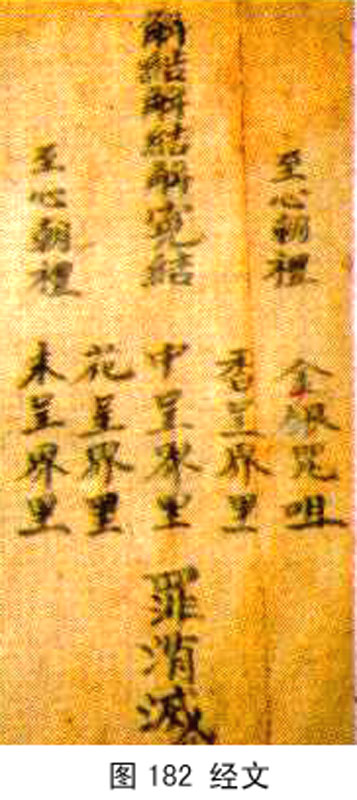 至心朝裡
金銀咒咀
香呈界里
解結解結解冤結
中呈界里
罪消滅
花呈界里
至心朝裡
呈界里
图 182 经文